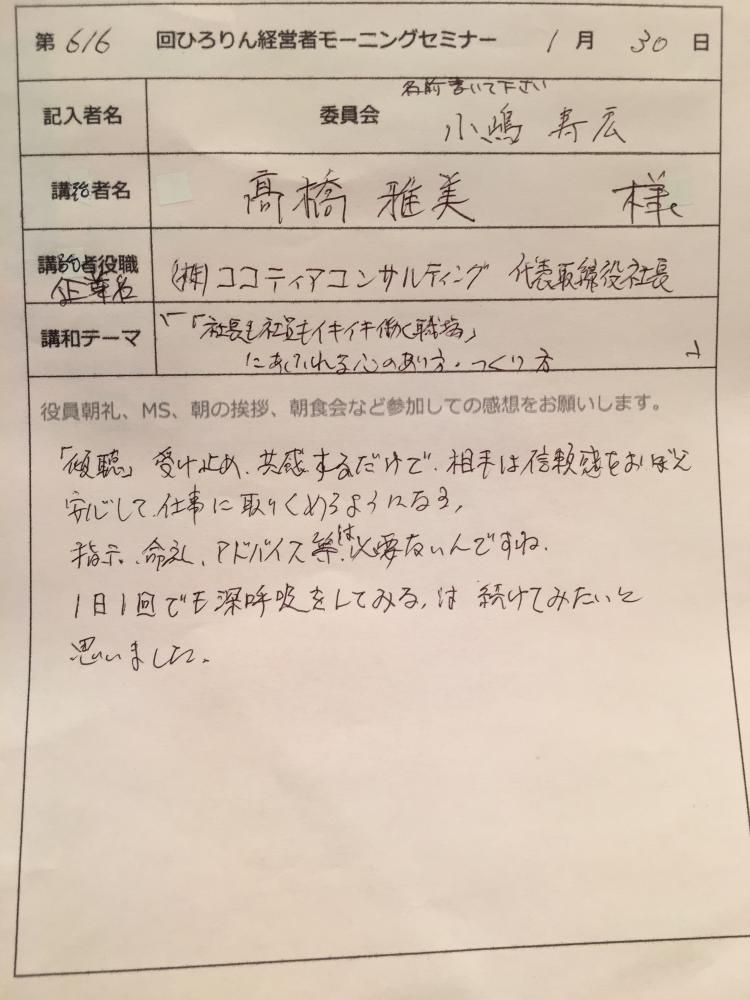 第 616 回ひろりん経営者モーニングセミナー 1 月 30 日
名前書いて下さい
記入者名 委員会 小嶋 寿広
講話者名 髙橋 雅美 様
講話者役職
企業名 (株)ココティアコンサルティング 代表取締役社長
講和テーマ 「「社長も社員もイキイキ働く職場」
にあふれる心のあり方・つくり方 」
役員朝礼、MS、朝の挨拶、朝食会など参加しての感想をお願いします。
「傾聴」受け止め、共感するだけで、相手は信頼感をおぼえ
安心して、仕事に取りくめるようになる,
指示、命令、アドバイス等は必要ないんですね.
1日1回でも深呼吸をしてみる, は 続けてみたいと
思いました.